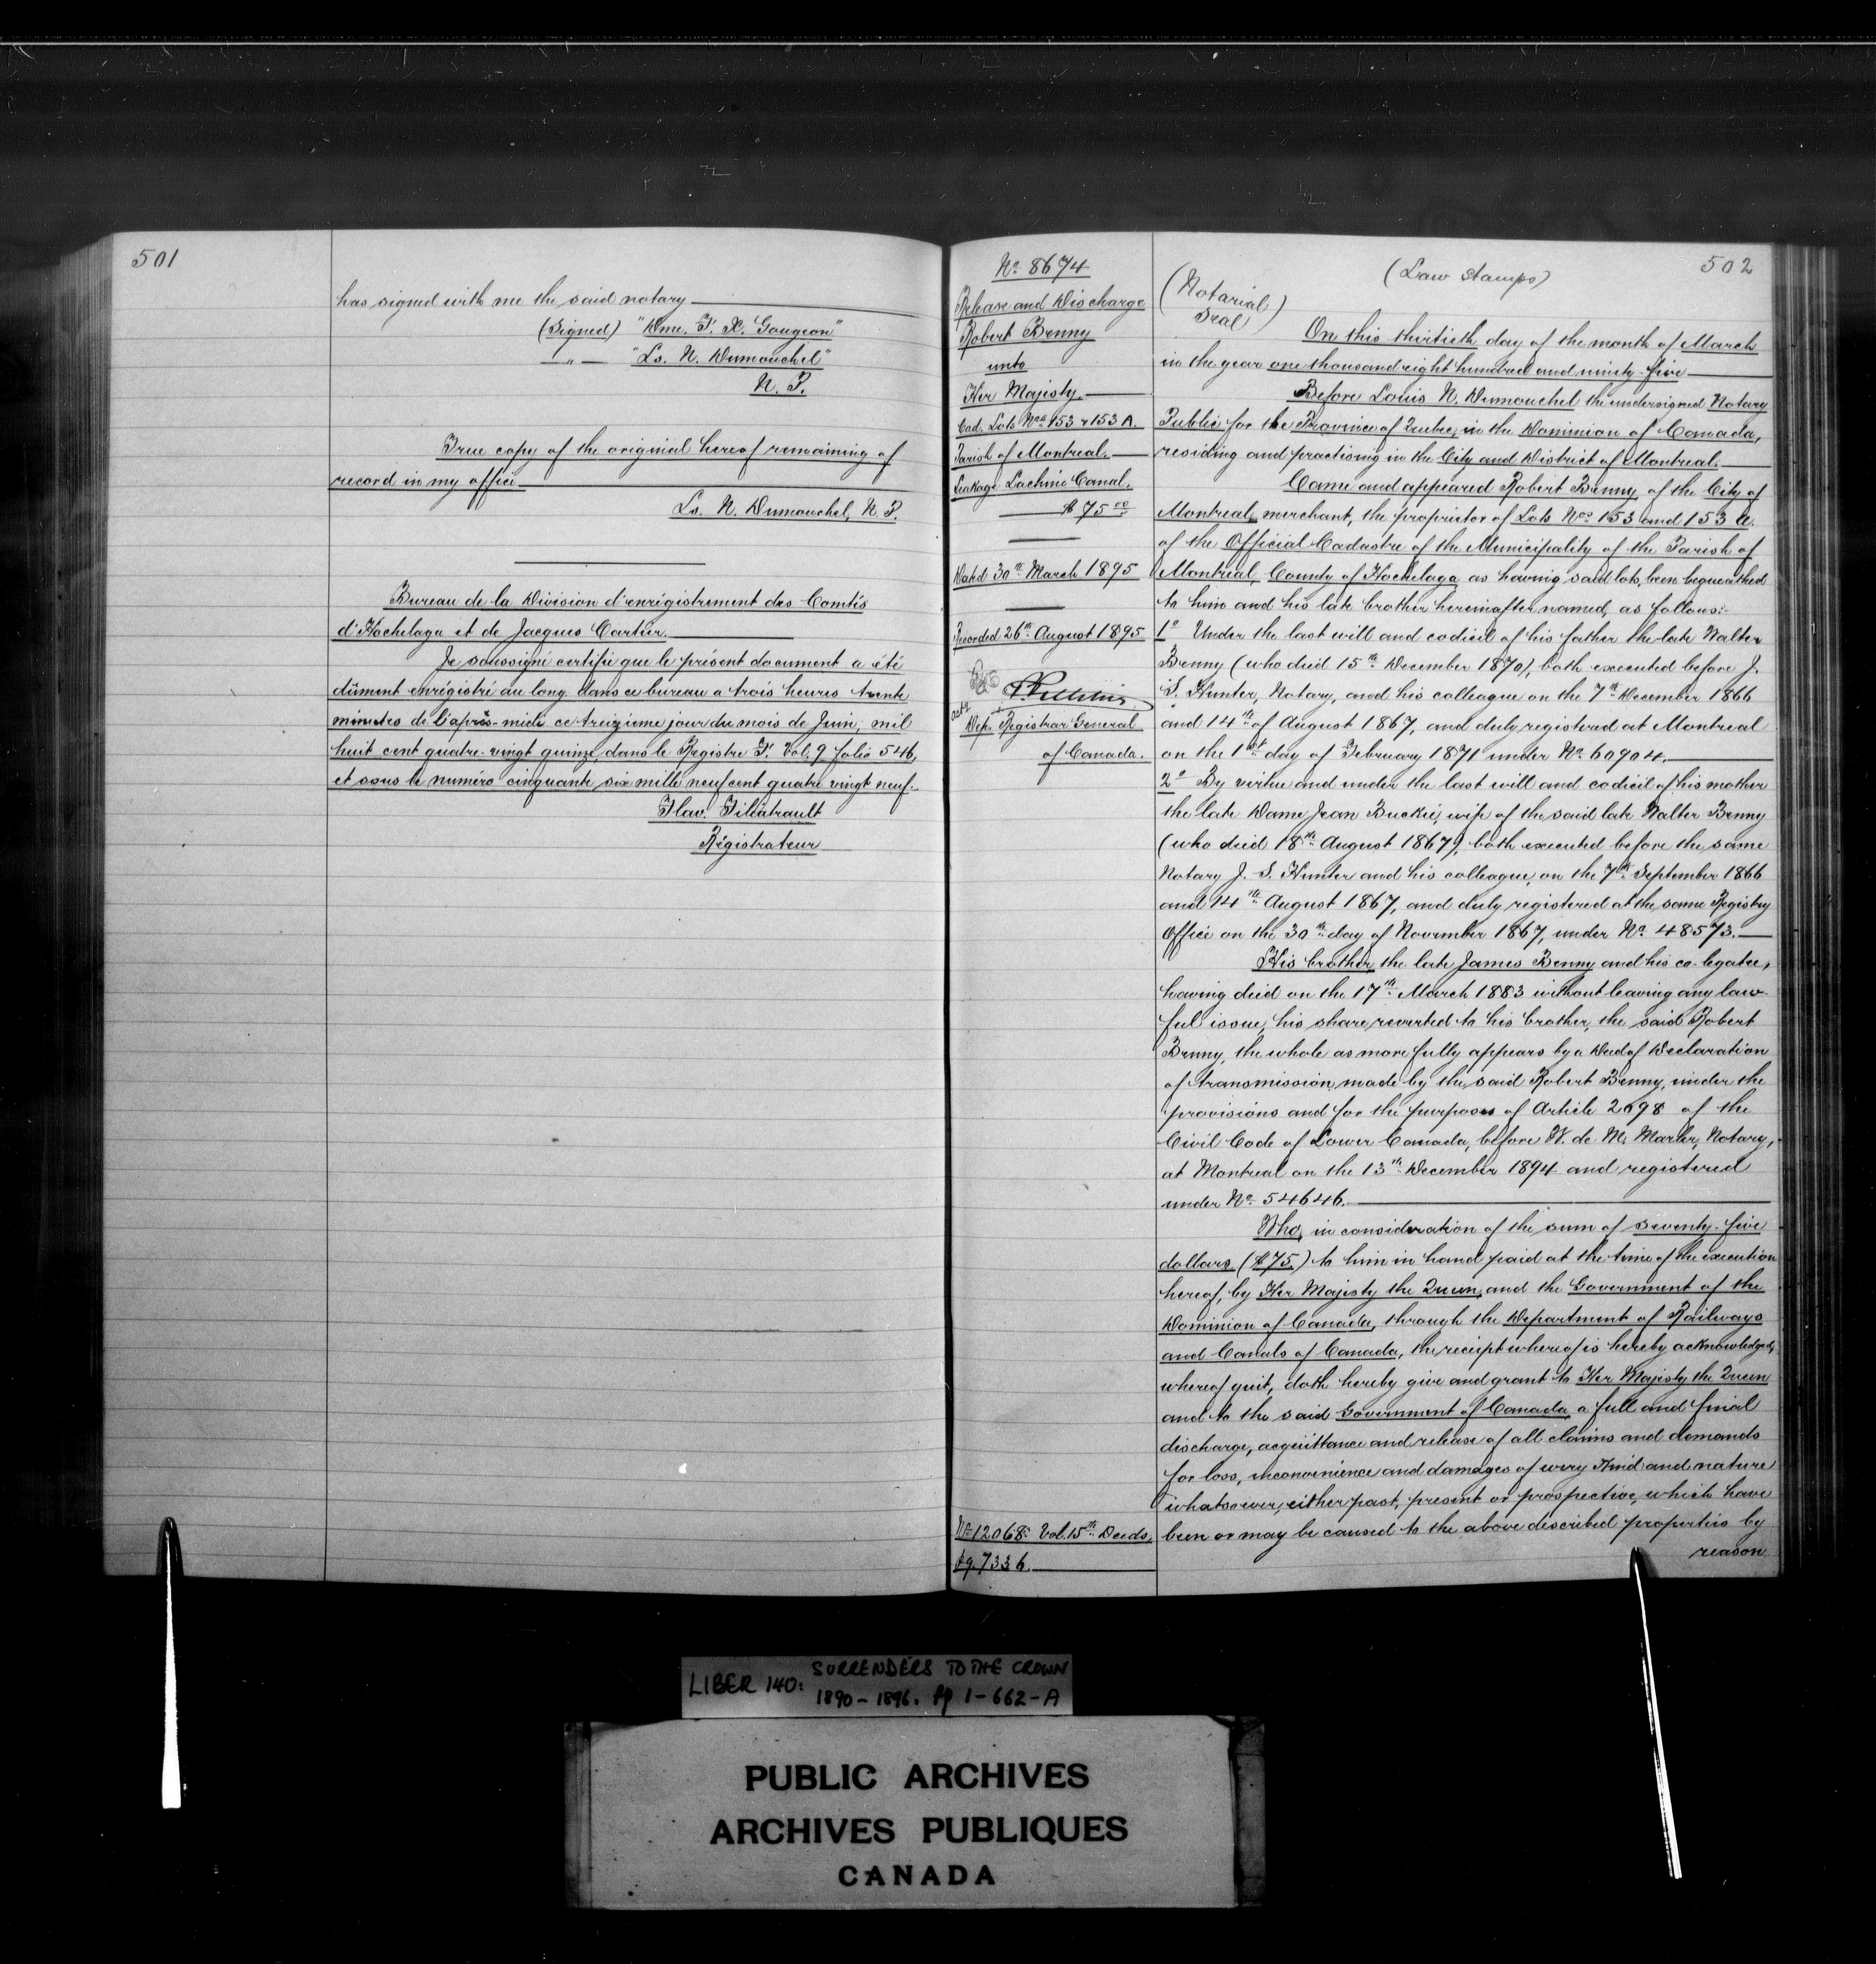 501
has signed with me the said notary
(Signed) "Dme. F. X. Gougeon"
" "Ls. N. Dumouchel"
N. P.
True copy of the original hereof remaining of
record in my office
Ls. N. Dumouchel, N. P.
Bureau de la Division d'enrégistrement des Comtés
d'Hochelaga et de Jacques Cartier.
Je soussigné certifie que le présent document a été
dûment enrégistré au long dans ce bureau a trois heures trente
minutes de l'après-midi ce treizieme jour du mois de Juin, mil
huit cent quatre-vingt quinze, dans le Registre F. Vol. 9 folio 546,
et sous le numéro cinquante six mille neuf cent quatre vingt neuf.
Flav. Filiatrault
Régistrateur
No. 8674
Release and Discharge
Robert Benny
unto
Her Majesty.
Cad. Lots Nos. 153 & 153 A.
Parish of Montreal.
Leakage Lachine Canal.
$ 75 00
Dated 30th March 1895
Recorded 26th August 1895
actg
Dep. Registrar General
of Canada.
No. 12068. Vol. 15th Deeds,
Pg. 7336.
502
(Law Stamps)
(Notarial
Seal)
On this thirtieth day of the month of March
in the year one thousand eight hundred and ninety-five
Before Louis N. Dumouchel the undersigned Notary
Public for the Province of Quebec, in the Dominion of Canada,
residing and practising in the City and District of Montreal.
Came and appeared Robert Benny, of the City of
Montreal, merchant, the proprietor of Lots Nos. 153 and 153 a.
of the Official Cadastre of the Municipality of the Parish of
Montreal, County of Hochelaga as having said lots, been bequeathed
to him and his late brother hereinafter named, as follows:-
1o Under the last will and codicil of his father the late Walter
Benny (who died 15th December 1870), both executed before J.
S. Hunter, Notary, and his colleague on the 7th December 1866
and 14th of August 1867, and duly registered at Montreal
on the 1st day of February 1871 under No. 60904.
2o By virtue and under the last will and codicil of his mother
the late Dame Jean Buckie, wife of the said late Walter Benny
(who died 18th August 1867), both executed before the same
Notary J. S. Hunter and his colleague, on the 7th September 1866
and 14th August 1867, and duly registered at the same Registry
Office on the 30th day of November 1867, under No. 48573.
His brother, the late James Benny and his co-legatee,
having died on the 17th March 1883 without leaving any law-
ful issue, his share reverted to his brother, the said Robert
Benny, the whole as more fully appears by a Deed of Declaration
of transmission, made by the said Robert Benny, under the
provisions and for the purposes of Article 2098 of the
Civil Code of Lower Canada, before W. de M. Marler, Notary,
at Montreal on the 13th December 1894 and registered
under No. 54646.
Who, in consideration of the sum of seventy-five
dollars ($75.) to him in hand paid at the time of the execution
hereof, by Her Majesty the Queen, and the Government of the
Dominion of Canada, through the Department of Railways
and Canals of Canada, the receipt whereof is hereby acknowledged,
whereof quit, doth hereby give and grant to Her Majesty the Queen
and to the said Government of Canada, a full and final
discharge, acquittance and release of all claims and demands
for loss, inconvenience and damages of every kind and nature
whatsoever, either past, present or prospective, which have
been or may be caused to the above described properties by
reason
LIBER 140: SURRENDERS TO THE CROWN
1890 - 1896. pp 1-662-A
PUBLIC ARCHIVES
ARCHIVES PUBLIQUES
CANADA